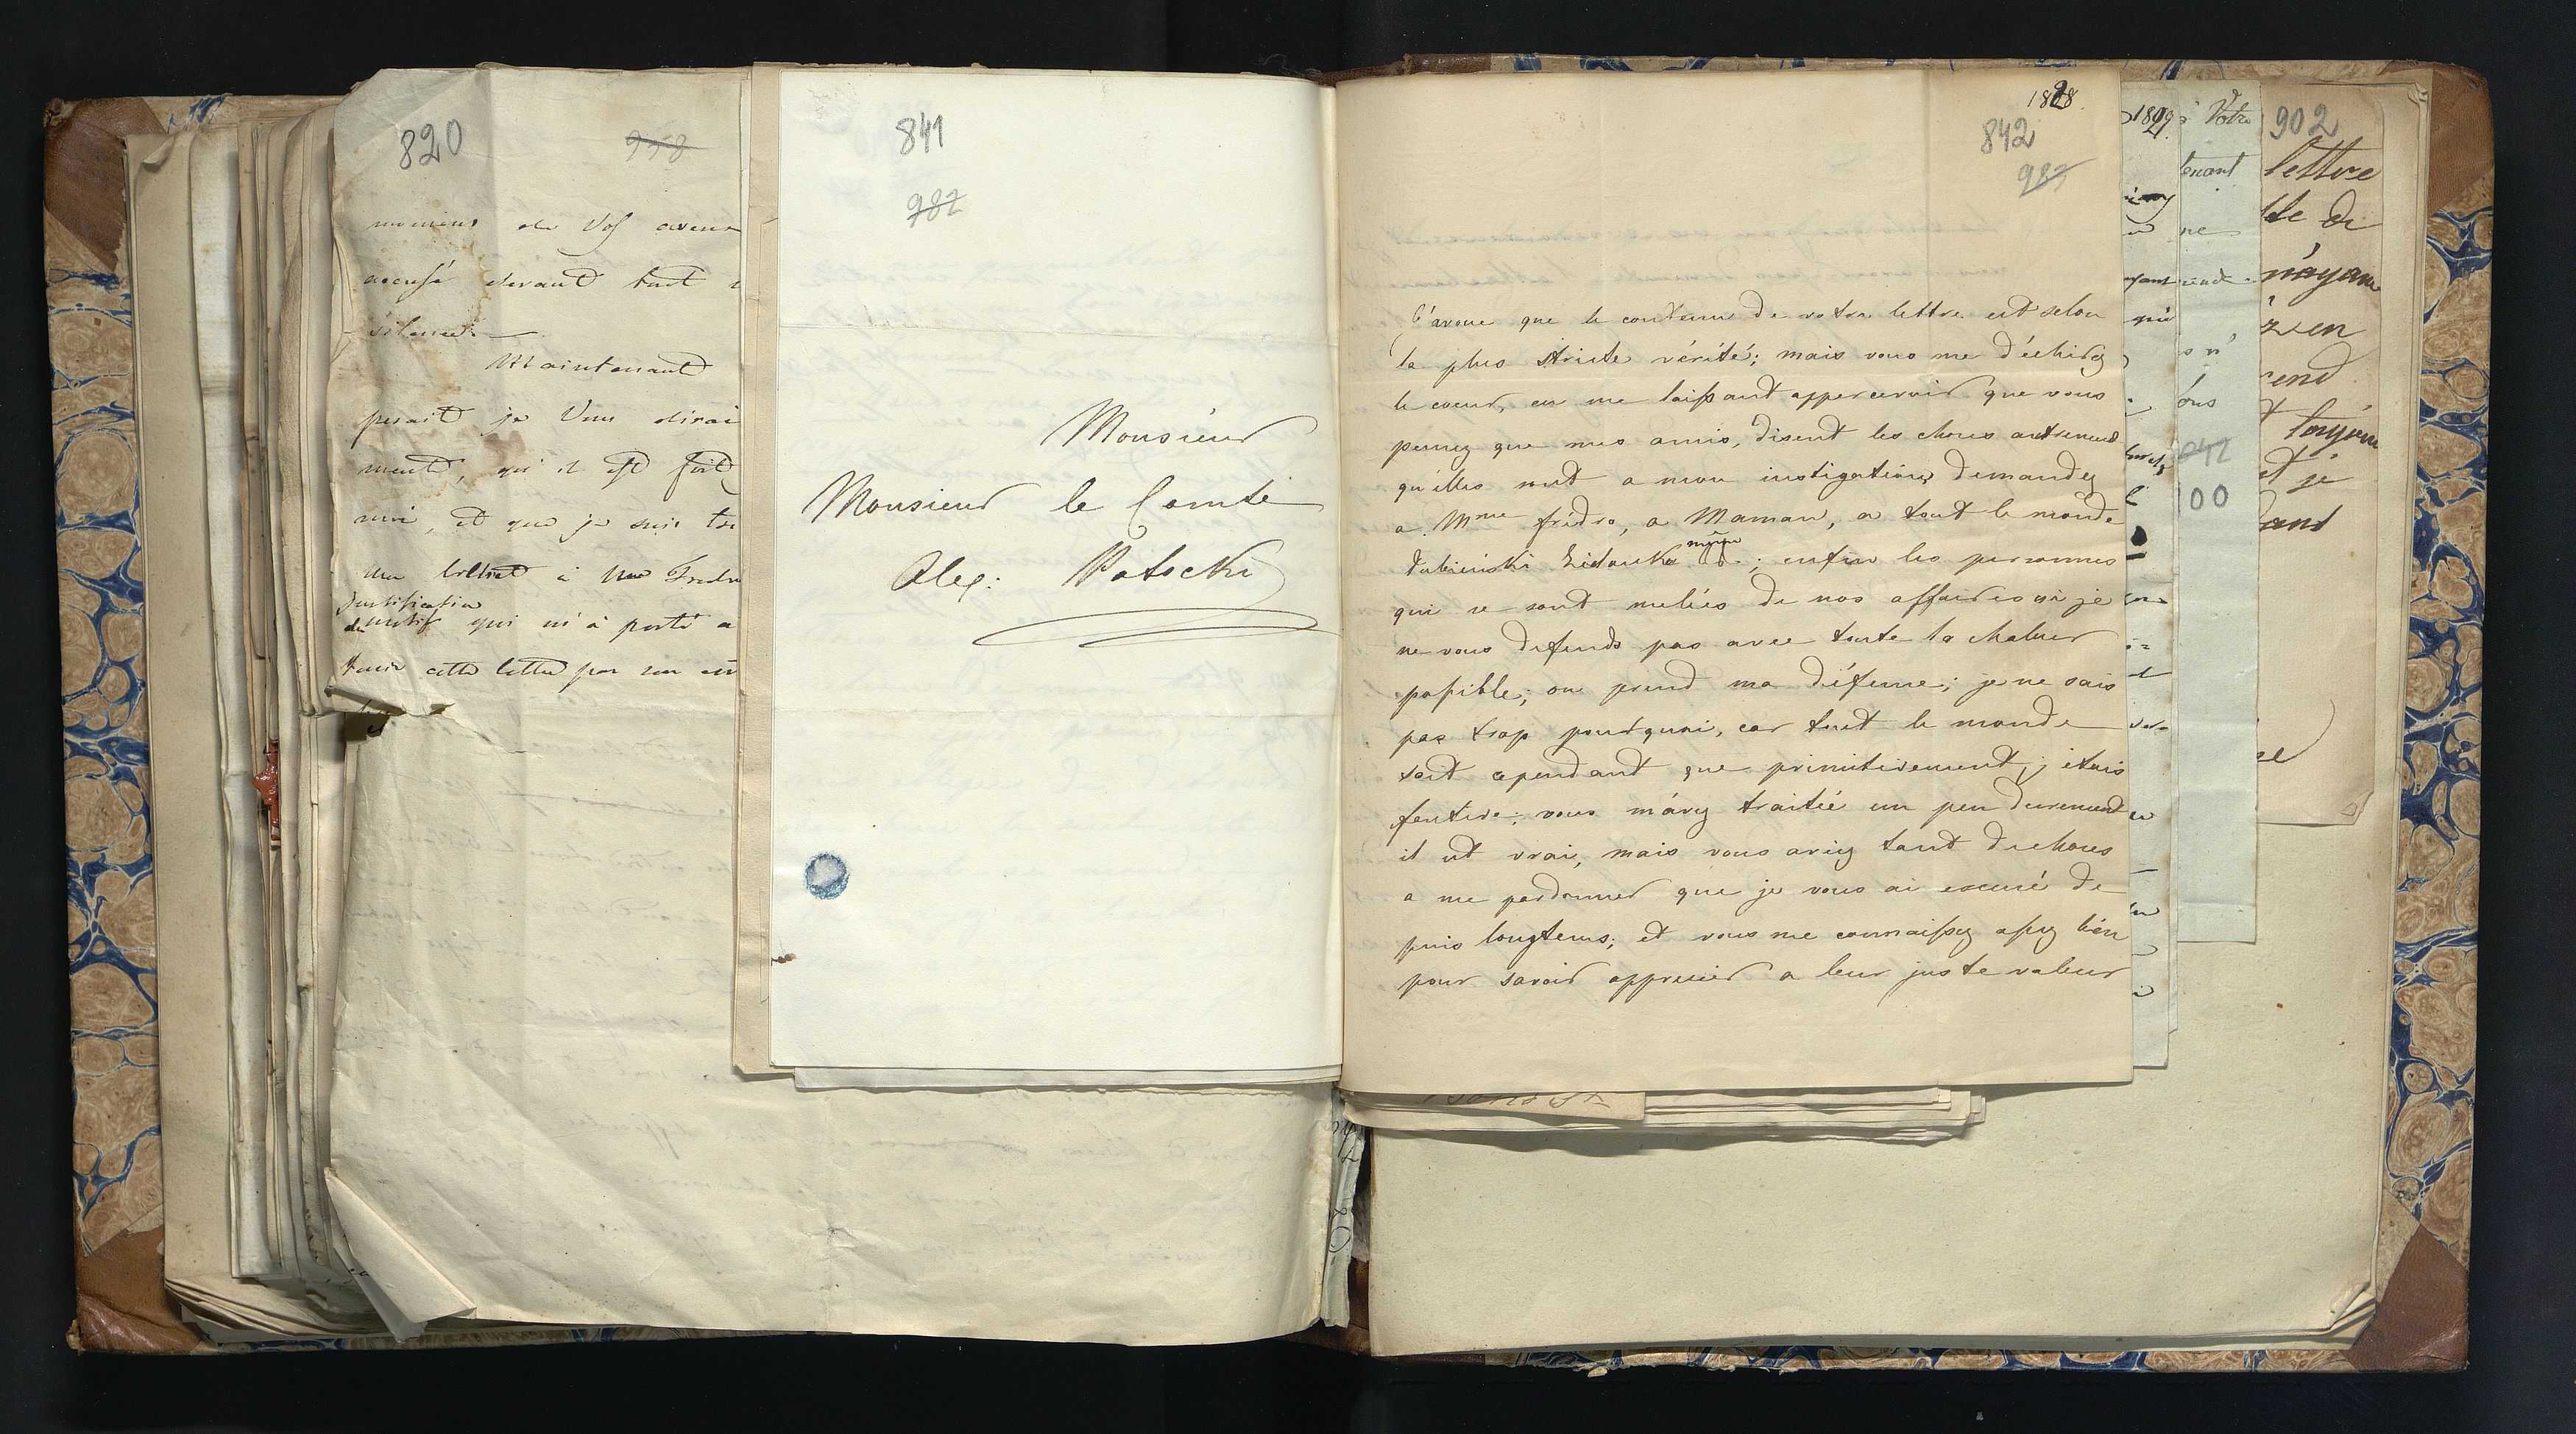 820
958
momens de Vos
accusé devant tout
silence
Maintenant
perait je Vous dirai
ment, qu'il est fort
moi, et que je suis
un billet à
Justification
du motif qui m'à porté a
cette lettre par
841
987
Monsieur
Monsieur le Comte
Alex: Potocki
1828
842
987
J'avoue que le contenu de votre lettre est selon
la plus stricte vérité; mais vous me déchirez
le coeur, en me laissant appercevoir que vous
pensez que mes amis, disent les choses autrement
qu'elles sont a mon instigation; demandez
a Mme fredro, a Maman, a tout le monde
même
Lubienski ; enfin les personnes
qui se sont melées de nos affaires si je
ne vous défends pas avec toute la chaleur
possible; on prend ma défense; je ne sais
pas trop pourquoi, car tout le monde
sait cependant que primitivement j'étais
fautive; vous m'avez traitée un peu durement
il est vrai, mais vous aviez tant de choses
a me pardonner que je vous ai excusé de
puis longtems; et vous me connaissez assez bien
pour savoir apprecier a leur juste valeur
1829
à Votre
tenant
ne
ous
00
902
lettre
de
en
rend
toujours
et je